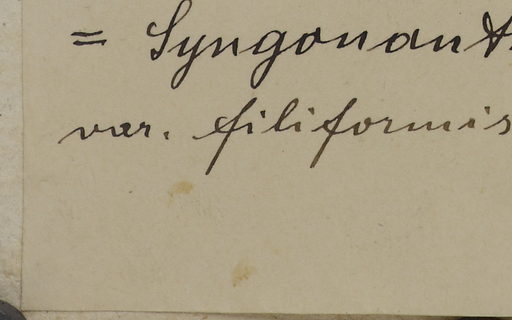 = Syngonant
var. filiformis